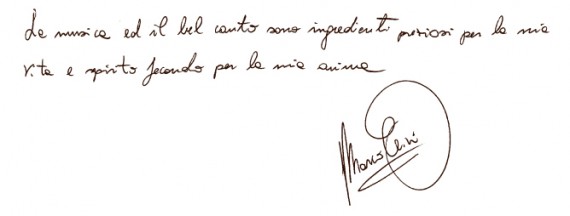 La musica ed il bel canto sono ingredienti preziosi per la mia
vita e spirito fecondo per la mia anima
Marco